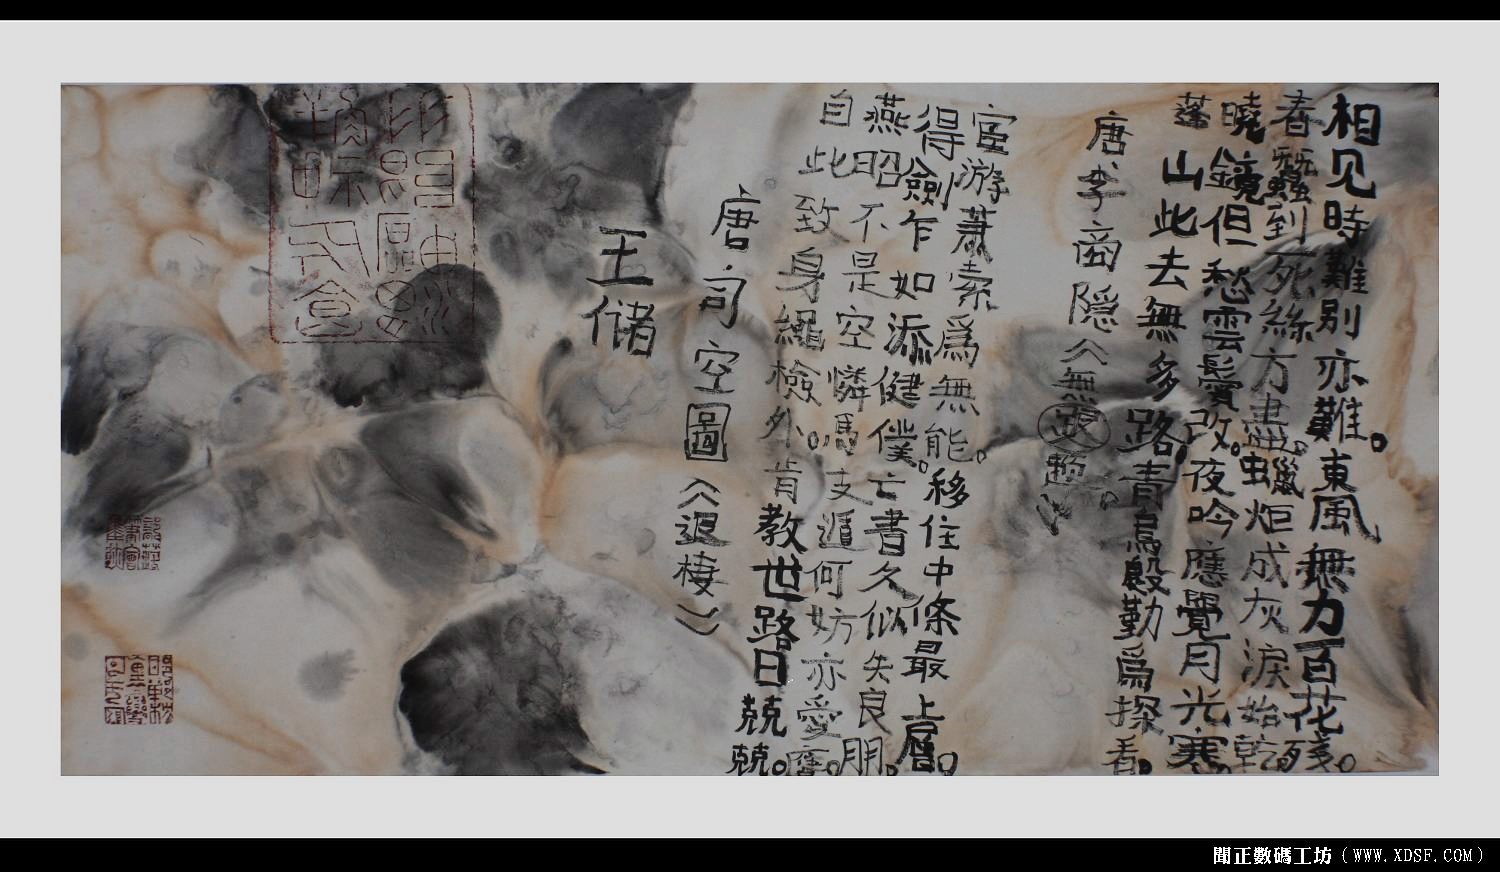 相见時難别亦難。東風無力百花殘。
春蠶到死絲方盡。蠟炬成灰淚始乾
曉鏡但愁雲鬢改。夜吟應覺月光寒。
蓬山此去無多路青鳥殷勤爲探看。
唐李商隱《無題》
宦游蕭索爲無能。移住中條最上層。
得劍乍如添健僕。亡書久似失良朋。
燕昭不是空憐馬支遁何妨亦愛鷹。
自此致身繩檢外。肯教世路日兢兢。
唐司空圖《退棲》
王储
聞正數碼工坊（WWW.XDSF.COM）